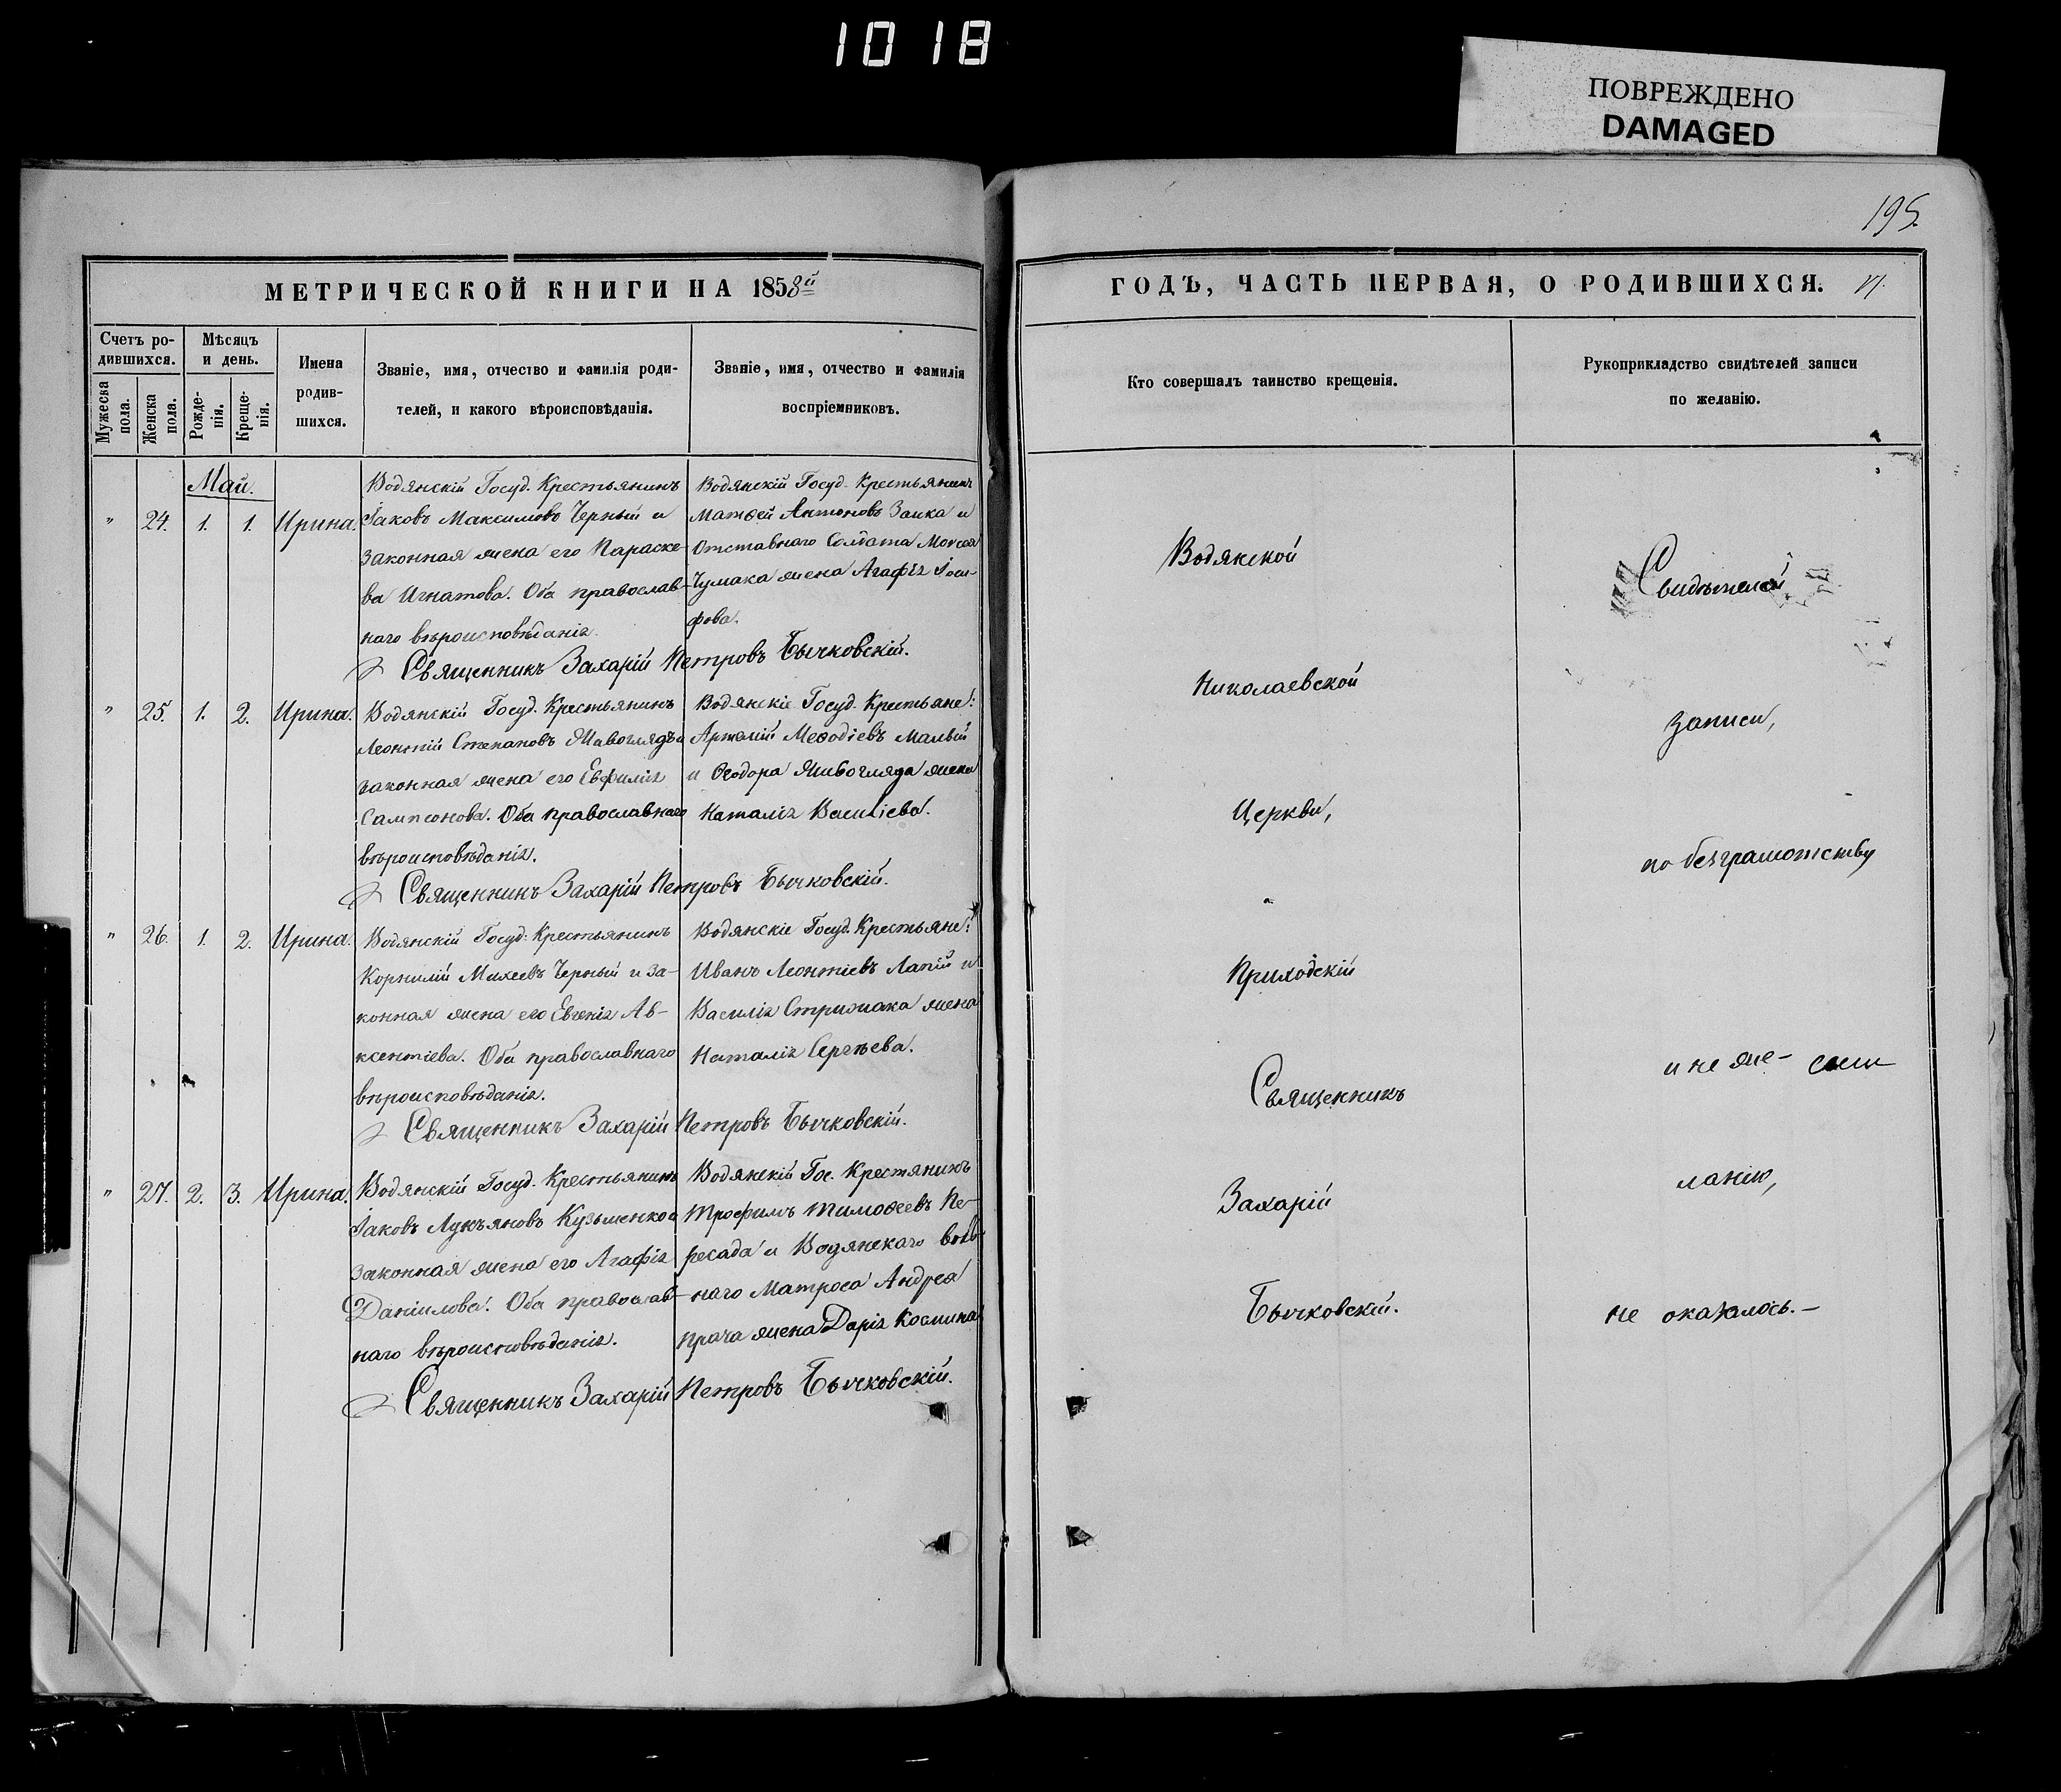 1018
ПОВРЕЖДЕНО
DAMAGED
195.
МЕТРИЧЕСКОЙ КНИГИ НА 1858й
Счетъ ро-
дившихся.
Мужеска
пола.
Женска
пола.
Мѣсяцъ
и день.
Рожде-
нія.
Креще-
нія.
Имена
родив-
шихся.
Званіе, имя, отчество и фамилія роди-
телей, и какого вѣроисповѣданія.
Званіе, имя, отчество и фамилія
воспріемниковъ.
Май.
" 24. 1. 1. Ирина.
Водянскій Госуд. Крестьянинъ
Іаковъ Максимовъ Черный и
законная жена его Параске-
ва Игнатова. Оба православ-
наго вѣроисповѣданія.
Водянскій Госуд. Крестьянинъ
Матѳей Антоновъ Заика и
Отставнаго Солдата Моисея
Чумака жена Агафія Іоси-
фова.
Священникъ Захарій Петровъ Бычковскій.
" 25. 1. 2. Ирина.
Водянскій Госуд. Крестьянинъ
Леонтій Степановъ Живоглядъ и
законная жена его Евфимія
Сампсонова. Оба православнаго
вѣроисповѣданія.
Водянскіе Госуд. Крестьяне:
Артемій Меѳодіевъ Малый
и Ѳеодора Живогляда жена
Наталія Василіева.
Священникъ Захарій Петровъ Бычковскій.
" 26. 1. 2. Ирина.
Водянскій Госуд. Крестьянинъ
Корнилій Михеевъ Черный и за-
конная жена его Евгенія Ав-
ксентіева. Оба православнаго
вѣроисповѣданія.
Водянскіе Госуд. Крестьяне:
Иванъ Леонтіевъ Лапій и
Василія Стрижака жена
Наталія Сергѣева.
Священникъ Захарій Петровъ Бычковскій.
" 27. 2. 3. Ирина.
Водянскій Госуд. Крестьянинъ
Іаковъ Лукъяновъ Кузьменко и
законная жена его Агафія
Даніилова. Оба православ-
наго вѣроисповѣданія.
Водянскій Гос. Крестянинъ
Трофимъ Тимоѳеевъ Пе-
ресада и Водянскаго
наго Матроса Андрея
Прача жена Дарія Космина
Священникъ Захарій Петровъ Бычковскій.
ГОДЪ, ЧАСТЬ ПЕРВАЯ, О РОДИВШИХСЯ.
Кто совершалъ таинство крещенія.
Водянской
Николаевской
Церкви,
Приходскій
Священникъ
Захарій
Бычковскій.
Рукоприкладство свидѣтелей записи
по желанію.
Свидѣтелей
записи,
по безграмотству
и не же-
ланію,
не оказалось.—